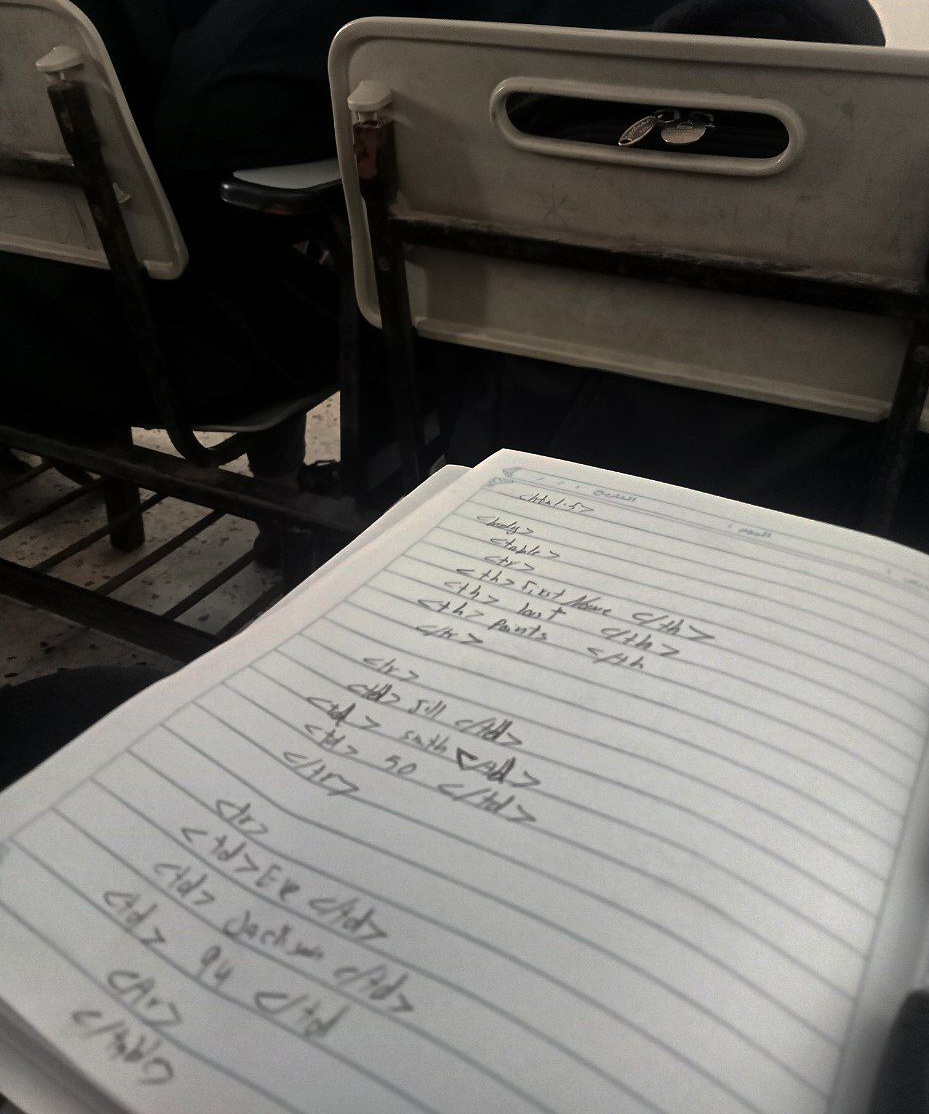 التاريخ / /
اليوم :
<html5>
<body>
<table>
<tr>
<th> First Name </th>
<th> last </th>
<th> points </th
</tr>
<tr>
<td> Jill </td>
<td> smth </td>
<td> 50 </td>
</tr>
<tr>
<td> Eve </td>
<td> Jackson </td>
<td> 94 </td
</tr>
</table>